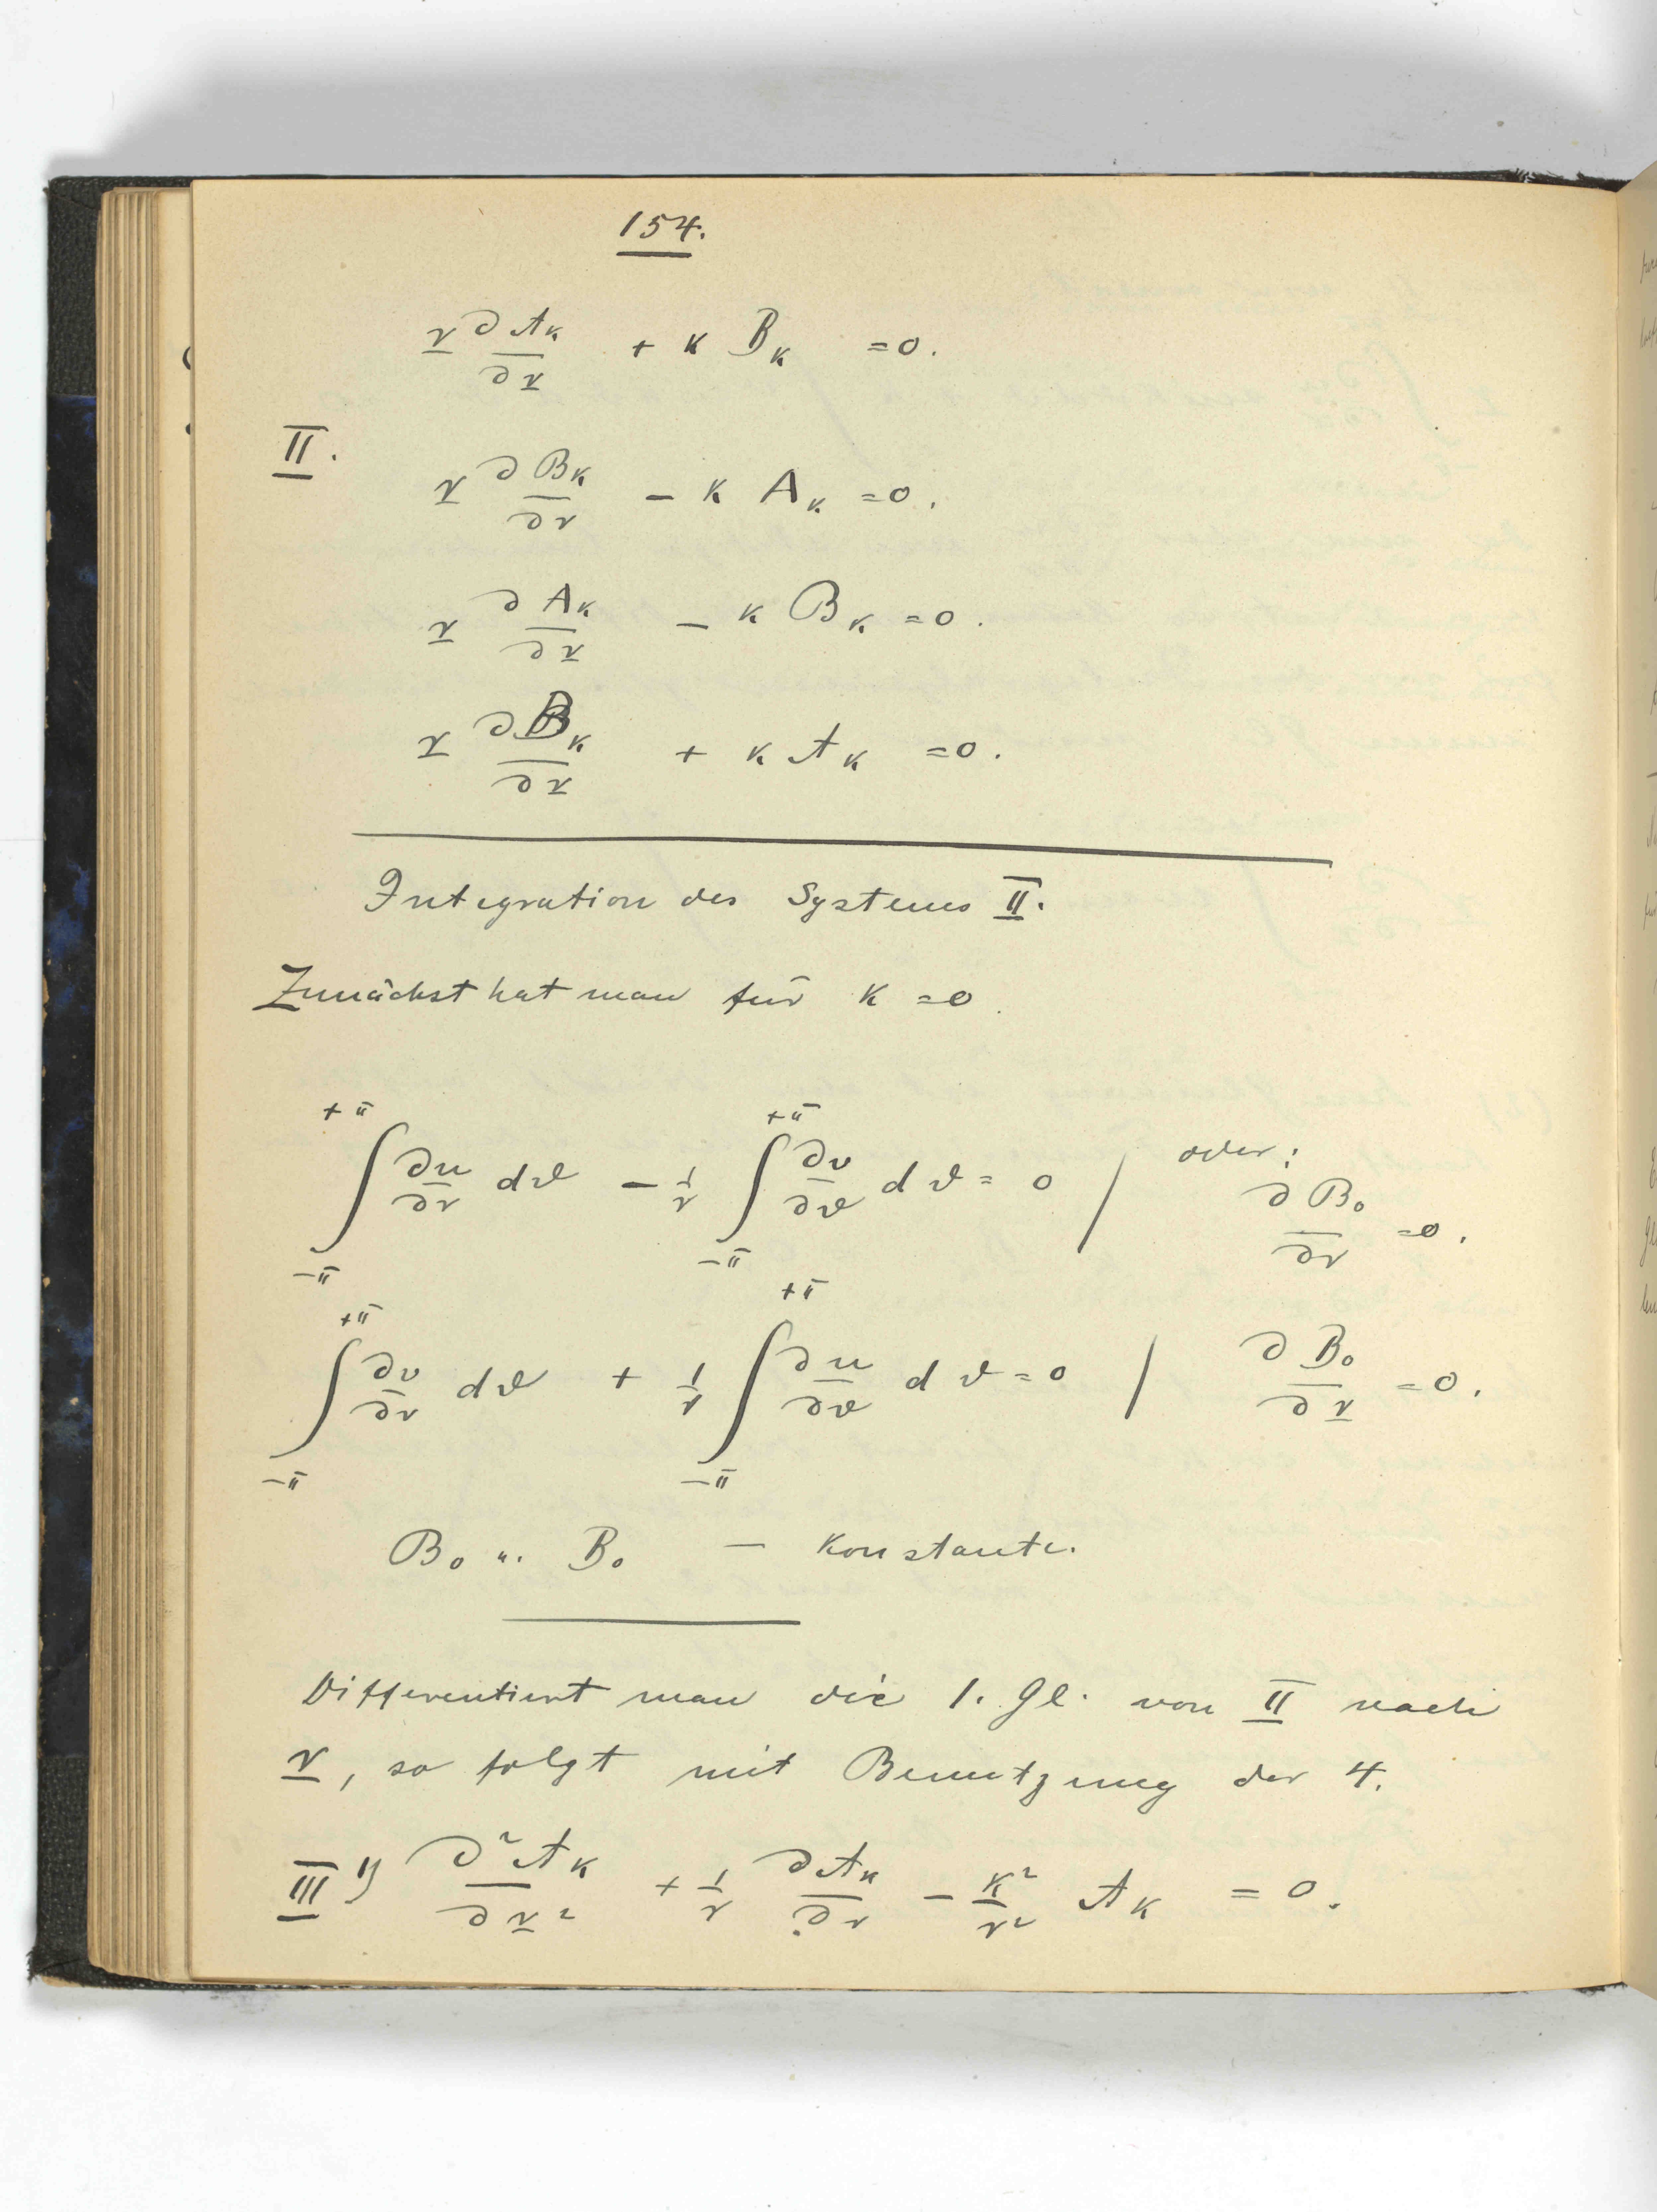 154.
r ∂𝒜ₖ/∂r + k Bₖ = 0.
II.
r ∂ℬₖ/∂r − k Aₖ = 0.
r ∂Aₖ/∂r − k ℬₖ = 0.
r ∂Bₖ/∂r + k 𝒜ₖ = 0.
Integration des Systems II.
Zunächst hat man für k = 0.
∫₋π^{+π} ∂u/∂r dϑ − 1/r ∫₋π^{+π} ∂v/∂ϑ dϑ = 0 | oder: ∂ℬ₀/∂r = 0.
∫₋π^{+π} ∂v/∂r dϑ + 1/r ∫₋π^{+π} ∂u/∂ϑ dϑ = 0 | ∂B₀/∂r = 0.
ℬ₀ u. B₀ — Konstante.
Differentiert man die 1. Gl. von II nach
r, so folgt mit Benutzung der 4.
III 1) ∂²𝒜ₖ/∂r² + 1/r ∂𝒜ₖ/∂r − k²/r² 𝒜ₖ = 0.